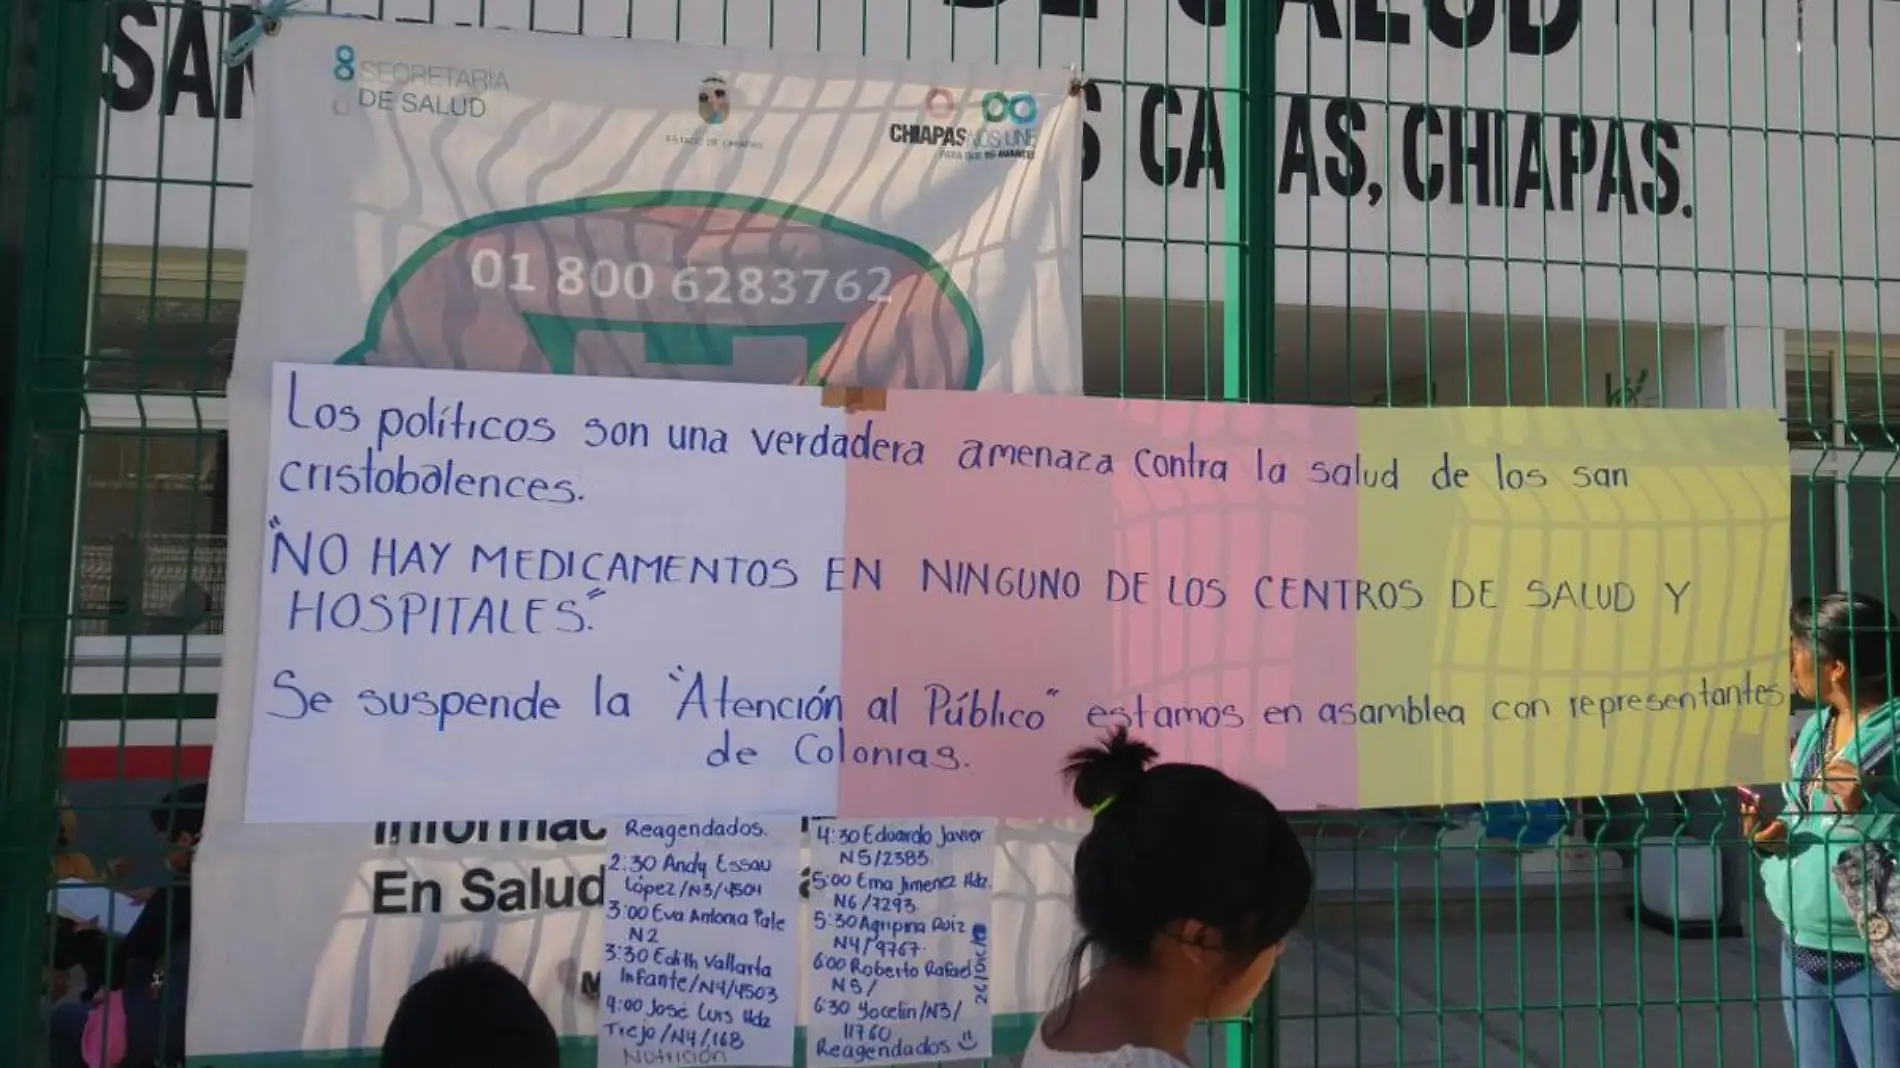 DE SALUD
SAN
S CA AS, CHIAPAS.
SECRETARÍA
DE SALUD
ESTADO DE CHIAPAS
CHIAPAS NOS UNE
01 800 6283762
Los políticos son una verdadera amenaza contra la salud de los san
cristobalences.
"NO HAY MEDICAMENTOS EN NINGUNO DE LOS CENTROS DE SALUD Y
HOSPITALES."
Se suspende la "Atención al Público" estamos en asamblea con representantes
de Colonias.
En Salud
Reagendados.
2:30 Andy Essau
López/N3/4504
3:00 Eva Antonia Pale
N2
3:30 Edith Vallarta
Infante/N4/4503
4:00 José Luis Hdz
Trejo/N4/168
Nutrición
4:30 Eduardo Javier
N5/2385
5:00 Ema Jimenez Hdz.
N6/7293
5:30 Agripina Ruiz
N4/9767.
6:00 Roberto Rafael
N5/
6:30 Yocelin/N3/
11760
Reagendados